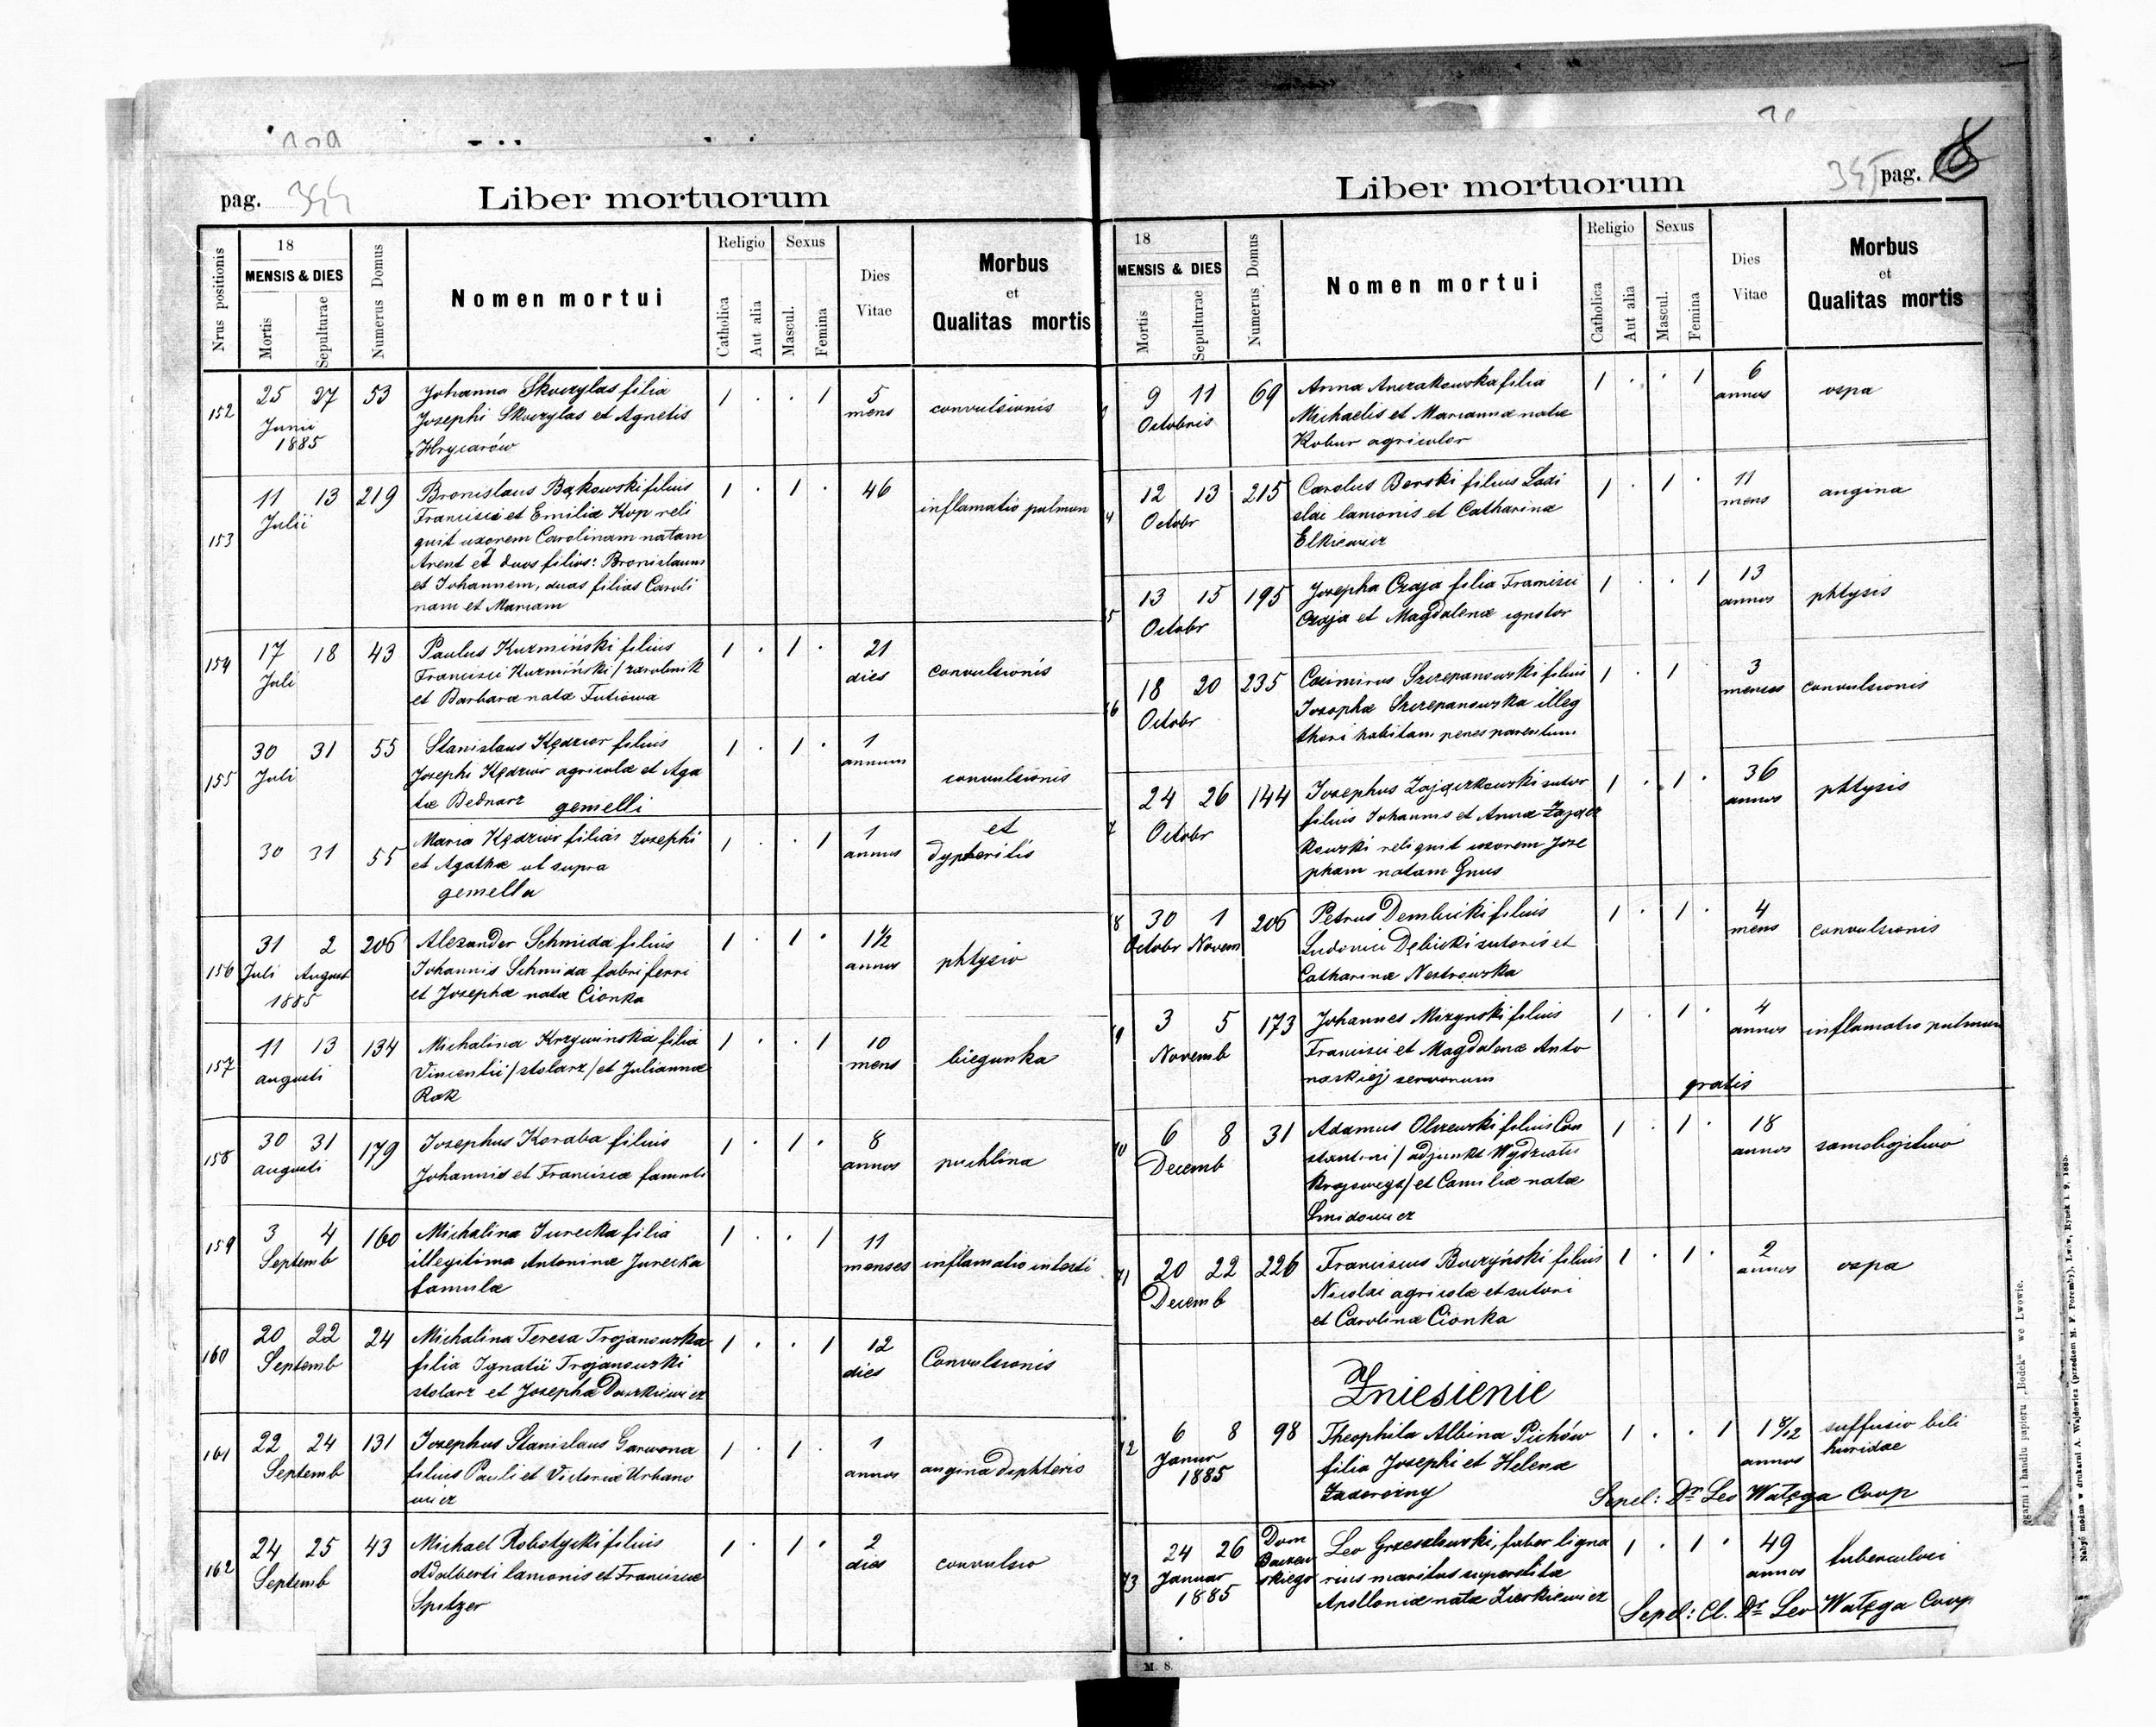 pag. 344
Liber mortuorum
Nrus positionis
18
MENSIS & DIES
Mortis
Sepulturae
Numerus Domus
Nomen mortui
Religio
Catholica
Aut alia
Sexus
Mascul.
Femina
Dies
Vitae
Morbus
et
Qualitas mortis
152 25 27 53 Johanna Skorzylas filia 1 . . 1 5
Junii Josephi Skorzylas et Agnetis mens convulsionis
1885 Hrycarów
153 11 13 219 Bronislaus Bąkowski filius 1 . 1 . 46
Julii Francisci et Emiliæ Kop reli inflamatio pulmon
quit uxorem Carolinam natam
Arent et duos filios: Bronislaum
et Johannem, duas filias Caroli
nam et Mariam
154 17 18 43 Paulus Kuzmiński filius 1 . 1 . 21
Juli Francisci Kuzmiński / zarobnik dies convulsionis
et Barbaræ natæ Tutiowa
155 30 31 55 Stanislaus Kędzior filius 1 . 1 . 1
Juli Josephi Kędzior agricolæ et Aga annum convulsionis
tæ Bednarz gemelli
30 31 55 Maria Kędzior filia Josephi 1 . . 1 1 et
et Agathæ ut supra annus dypteritis
gemella
156 31 2 206 Alexander Schmida filius 1 . 1 . 1½
Juli August Johannis Schmida fabri ferri annos phtysis
1885 et Josephæ natæ Cionka
157 11 13 134 Michalina Krzywinska filia 1 . . 1 10
augusti Vincentii / stolarz / et Juliannæ mens biegunka
Rak
158 30 31 179 Josephus Koraba filius 1 . 1 . 8
augusti Johannis et Franciscæ famuli annos puchlina
159 3 4 160 Michalina Jurecka filia 1 . . 1 11
Septemb illegitima Antoninæ Jurecka menses inflamatio intesti
famulæ
160 20 22 24 Michalina Teresa Trojanowska 1 . . 1 12
Septemb filia Ignatii Trojanowski dies Convulsionis
stolarz et Josepha
161 22 24 131 Josephus Stanislaus Garwona 1 . 1 . 1
Septemb filius Pauli et Victoriæ Urbano annos angina diphteris
wicz
162 24 25 43 Michael Robotycki filius 1 . 1 . 2
Septemb Adalberti lanionis et Franciscæ dies convulsio
Spitzer
Liber mortuorum
345 pag.
18
MENSIS & DIES
Mortis
Sepulturae
Numerus Domus
Nomen mortui
Religio
Catholica
Aut alia
Sexus
Mascul.
Femina
Dies
Vitae
Morbus
et
Qualitas mortis
9 11 69 Anna Anczakowska filia 1 . . 1 6
Octobris Michaelis et Mariannæ natæ annos ospa
Kobur agricolor
4 12 13 215 Carolus Borski filius Ladi 1 . 1 . 11
Octobr slai lanionis et Catharinæ mens angina
Elkiewicz
5 13 15 195 Josepha Czaja filia Francisci 1 . . 1 13
Octobr Czaja et Magdalenæ annos phtysis
6 18 20 235 Casimirus Szczepanowski filius 1 . 1 3
Octobr Josephæ Szczepanowska illeg menses convulsionis
thori habitam penes parentum
7 24 26 144 Josephus Zajączkowski sutor 1 . 1 . 36
Octobr filius Johannis et Annæ Zającz annos phtysis
kowski reliquit uxorem Jose
pham natam Gnus
8 30 1 206 Petrus Dembicki filius 1 . 1 . 4
Octobr Novem Ludovici Dębicki sutoris et mens convulsionis
Catharinæ Nestrowska
9 3 5 173 Johannes Mizynski filius 1 . 1 . 4
Novemb Francisci et Magdalenæ Anto annos inflamatio pulmon
noskiej servorum gratis
10 6 8 31 Adamus Olszewski filius Con 1 . 1 . 18
Decemb stantini / adjunkt Wydziału annos samobojstwo
Krajowego / et Camiliæ natæ
Smidowicz
71 20 22 226 Franciscus Buczyński filius 1 . 1 . 2
Decemb Nicolai agricolæ et sutori annos ospa
et Carolinæ Cionka
Zniesienie
12 6 8 98 Theophila Albina Pichów 1 . . 1 1 8/12 suffusio bili
Januar filia Josephi et Helenæ annos huridae
1885 Zadorożny Sepel: Dr Leo Wałęga Coop
73 24 26 Dom Baczew skiego Leo Grzeszkowski, faber ligna 1 . 1 . 49
Januar rius maritus superstitæ annos tuberculosi
1885 Apolloniæ natæ Zierkiewicz Sepel: Cl. Dr Leo Wałęga Coop
M. 8.
garni i handlu papieru „Bodek" we Lwowie.
Nabyć można w drukarni A. Wajdowicz (przedtem M. F. Poremby), Lwów, Rynek l. 9, 1885.